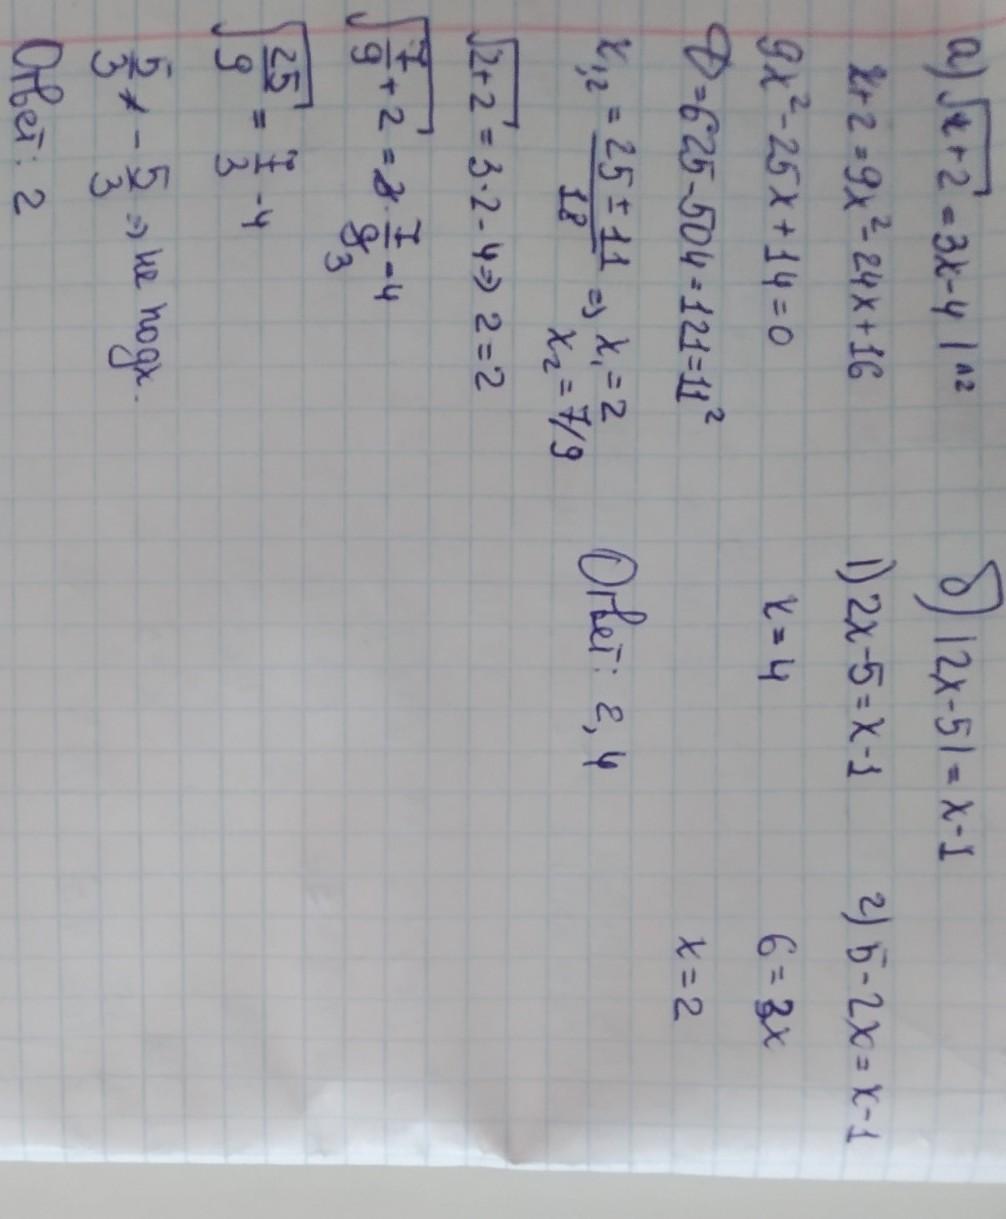 а) √x+2 = 3x-4 |^2
x+2 = 9x² - 24x + 16
9x² - 25x + 14 = 0
D = 625 - 504 = 121 = 11²
x₁,₂ = (25 ± 11)/18 ⇒ x₁ = 2
x₂ = 7/9
√2+2 = 3·2 - 4 ⇒ 2 = 2
√7/9 + 2 = 3·7/9 3 - 4
√25/9 = 7/3 - 4
5/3 ≠ - 5/3 ⇒ не подх.
Ответ: 2
б) |2x-5| = x-1
1) 2x-5 = x-1
x = 4
2) 5-2x = x-1
6 = 3x
x = 2
Ответ: 2, 4